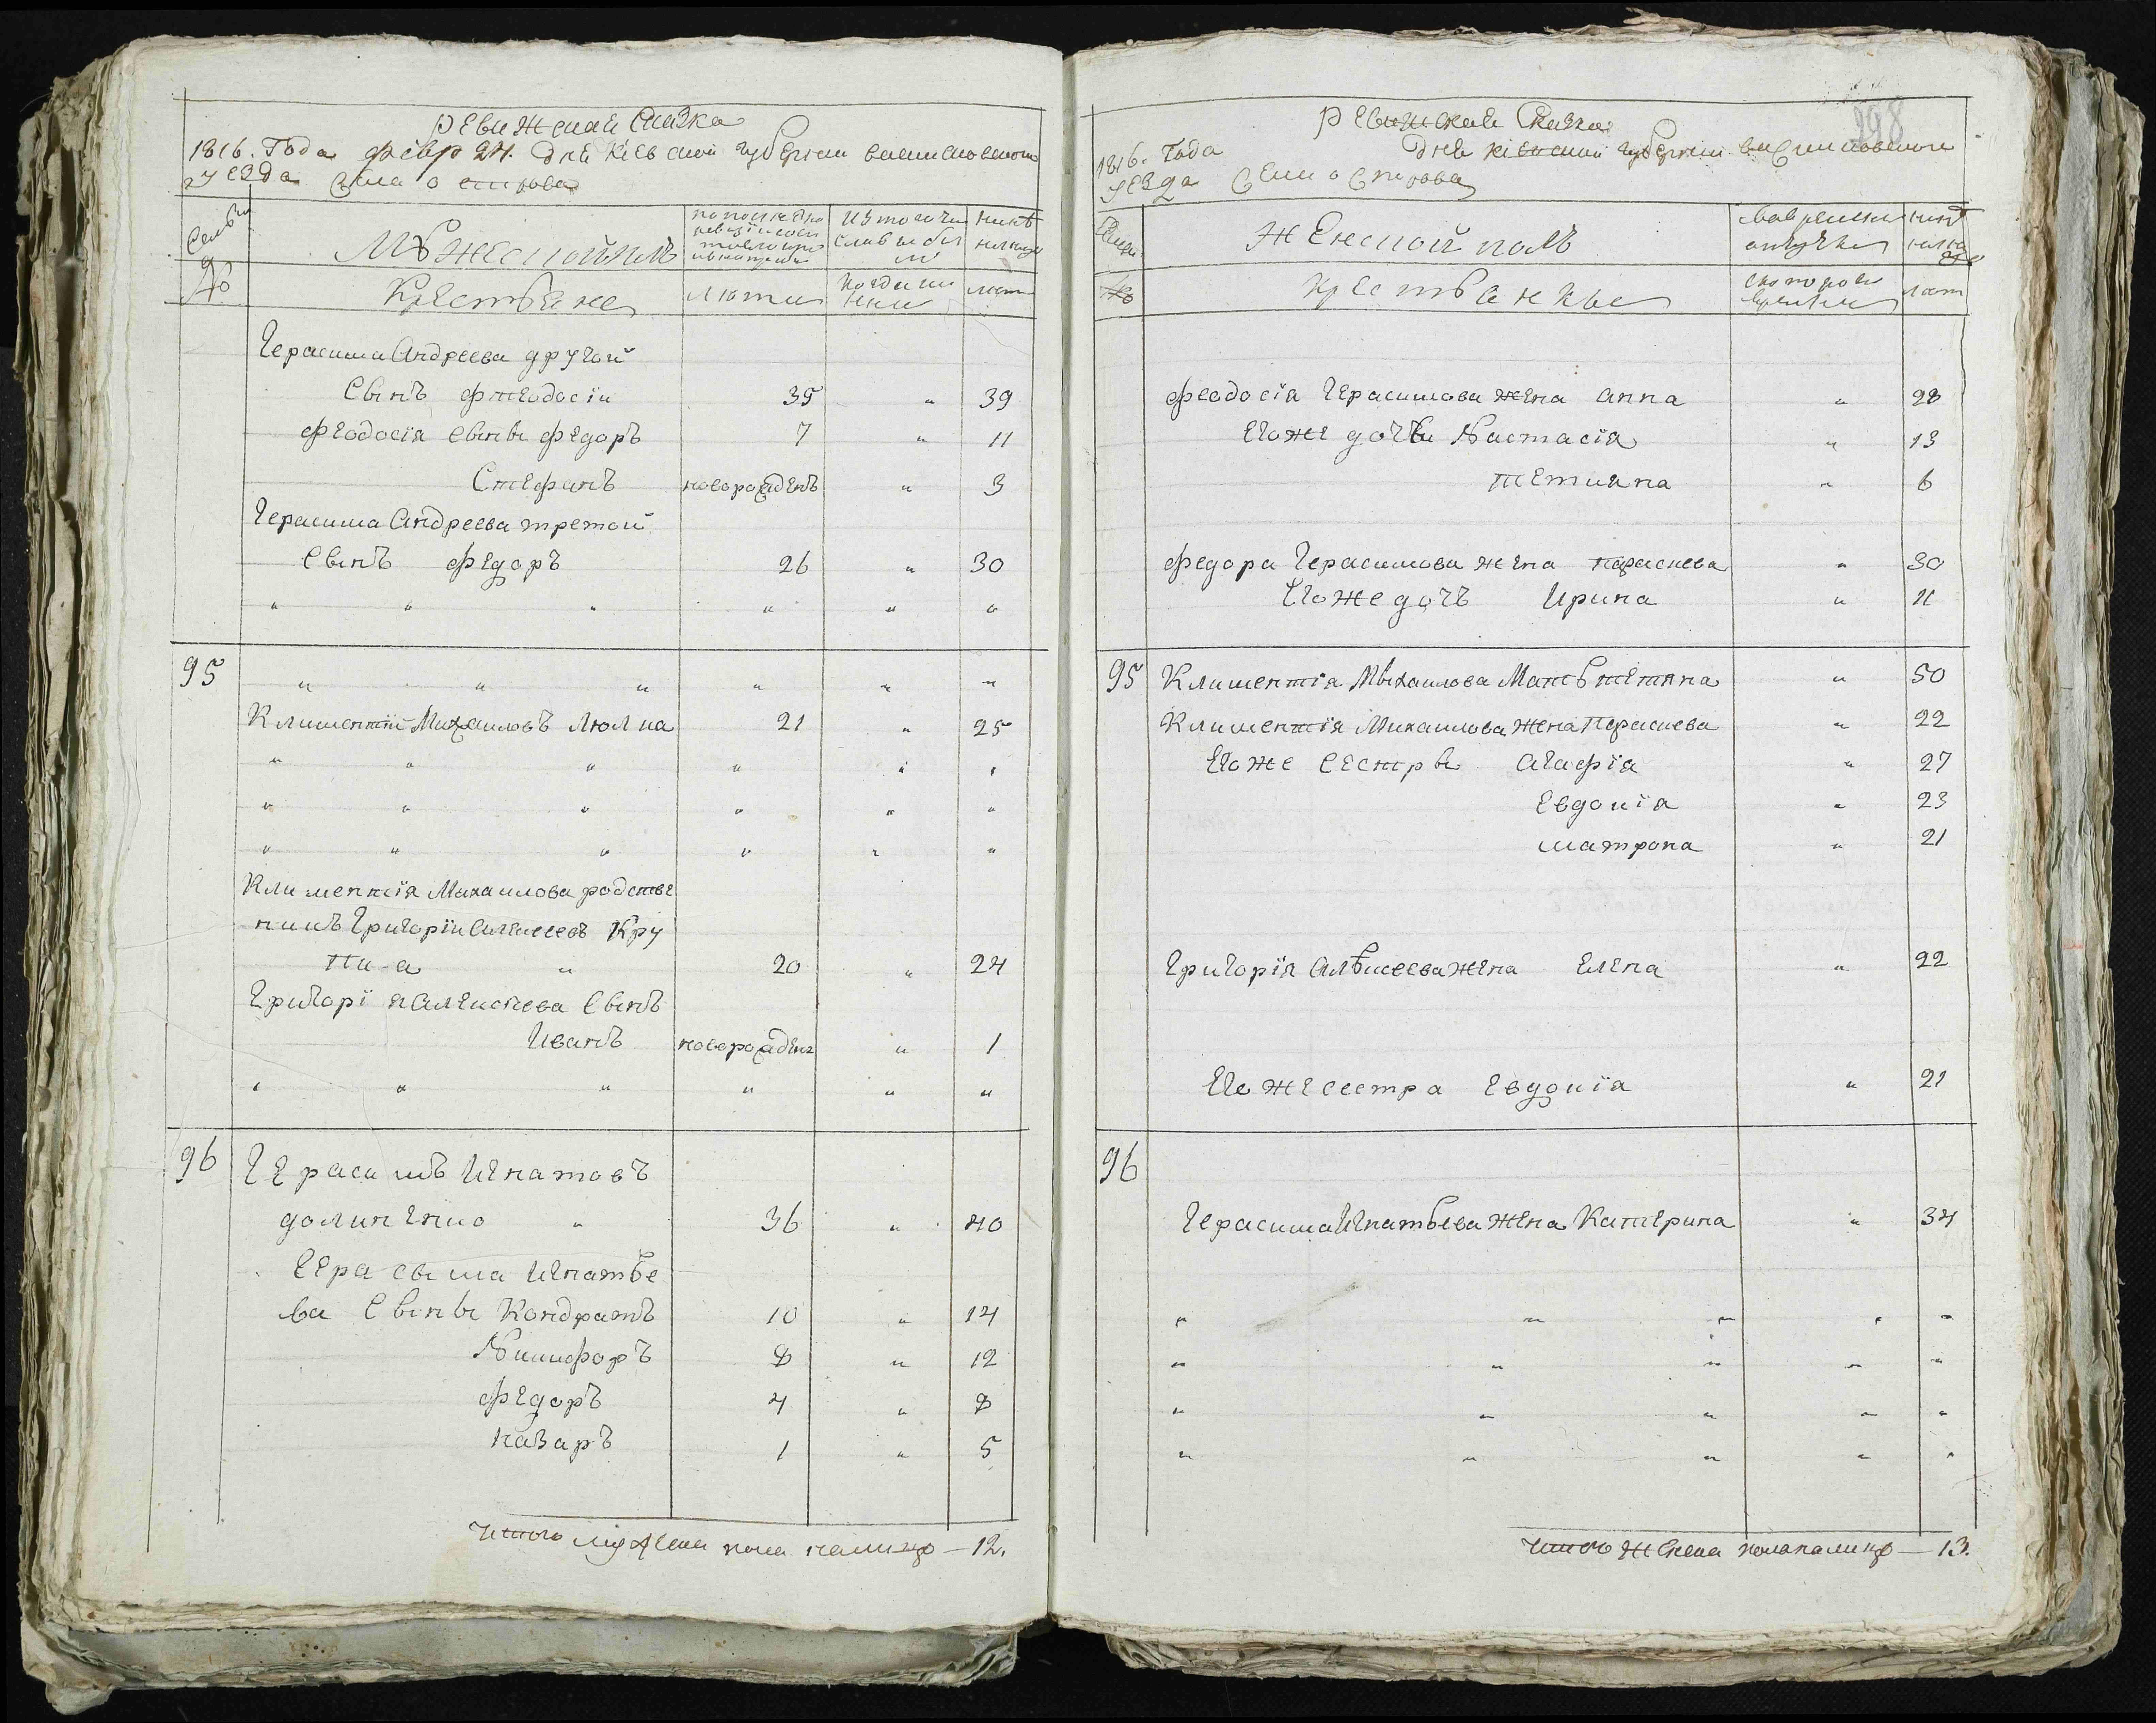 Ревижская Сказка
1816. Года февр 24. дня Киевской губернии васильковского
уезда Села острова
Семьи
Мужеской полъ
по последней ревизии состояло и по оной прибыло
Из того числа выбыло
Ныне на лицо
№
Крестьяне
лета
когда именно
лета
Герасима Андреева другой
Сынъ Фтеодосiи 35 " 39
Феодосiя Сыны Федоръ 7 " 11
Стефанъ новорожденъ " 3
Герасима Андреева третой
Сынъ Федоръ 26 " 30
" " " " " "
95 " " " " " "
Климентiй Михаиловъ Люлка 21 " 25
" " " " " "
" " " " " "
" " " " " "
Климентiя Михаилова родстве
никъ Григорiи Алексеевъ Кру
па " 20 " 24
Григорiя Алексеева Сынъ
Иванъ новорожденъ " 1
" " " " " "
96 Герасимъ Игнатовъ
долиненко " 36 " 40
Герасыма Игнатье
ва Сыны Кондратъ 10 " 14
Никифоръ 8 " 12
Федоръ 4 " 8
назаръ 1 " 5
Итого мужеска пола налицо — 12.
298
Ревижская Сказка
1816. Года дня Киевской губернии васильковского
уезда Села острова
Семьи
Женской полъ
Во временной отлучке
Ныне на лицо
№
Крестьянки
С которого времени
лета
Феодосiя Герасимова жена Анна " 28
Егоже дочки Настасiя " 13
Тетияна " 6
Федора Герасимова жена параскева " 30
Егоже дочъ Ирина " 11
95 Климентiя Мыхаилова Мать тетяна " 50
Климентiя Михаилова жена Параскева " 22
Егоже Сестры Агафiя " 27
Евдокiя " 23
матрона " 21
Григорiя Алѣксеева жена Елена " 22
Егоже сестра Евдокiя " 21
96
Герасима Игнатьева жена Катерина " 34
" " " " "
" " " " "
" " " " "
" " " " "
Итого женска пола налицо — 13.